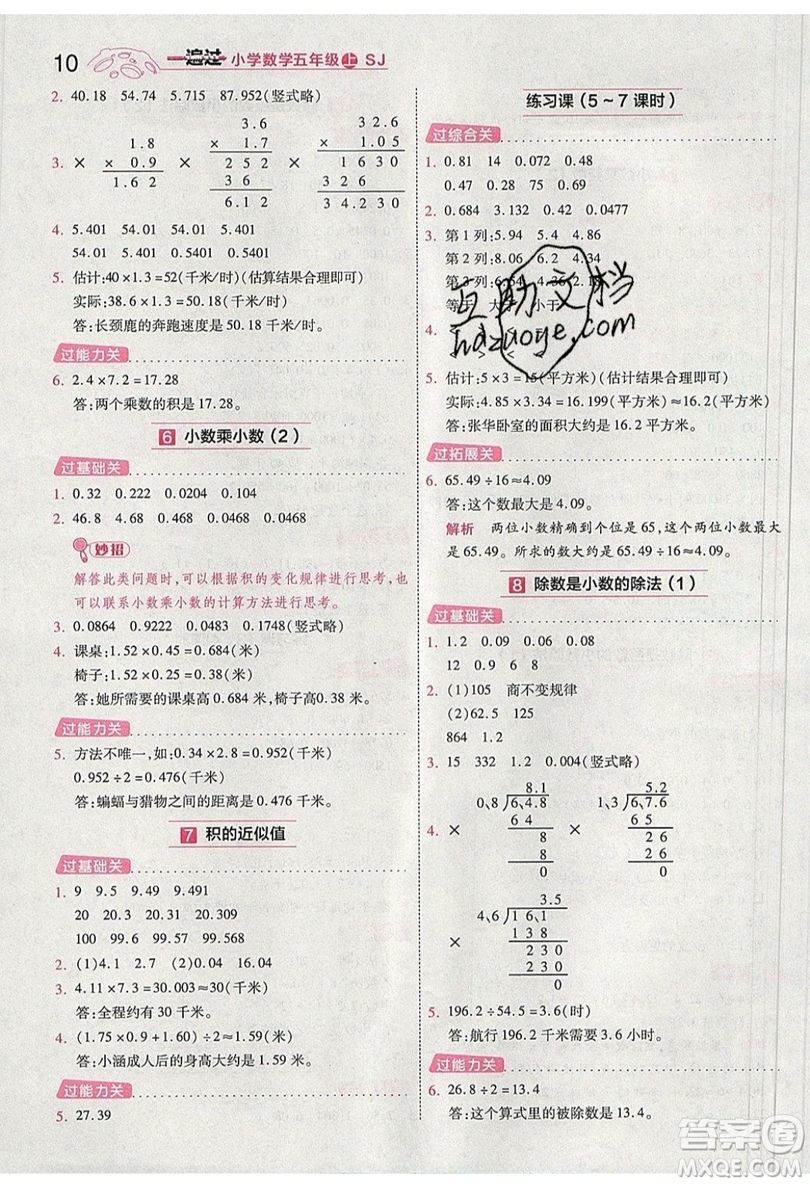 10 一遍过 小学数学五年级上 SJ
2. 40.18 54.74 5.715 87.952(竖式略)
3. ×
1.8
× 0.9
1.6 2
×
3.6
× 1.7
2 5 2
3 6
6.1 2
×
3 2.6
× 1.0 5
1 6 3 0
3 2 6
3 4.2 3 0
4. 5.401 5.401 54.01 5.401
54.01 5.401 5.401
5. 估计:40×1.3=52(千米/时)(估算结果合理即可)
实际:38.6×1.3=50.18(千米/时)
答:长颈鹿的奔跑速度是 50.18 千米/时。
过能力关
6. 2.4×7.2=17.28
答:两个乘数的积是 17.28。
6 小数乘小数(2)
过基础关
1. 0.32 0.222 0.0204 0.104
2. 46.8 4.68 0.468 0.0468 0.0468
妙招
解答此类问题时,可以根据积的变化规律进行思考,也
可以联系小数乘小数的计算方法进行思考。
3. 0.0864 0.9222 0.0483 0.1748(竖式略)
4. 课桌:1.52×0.45=0.684(米)
椅子:1.52×0.25=0.38(米)
答:她所需要的课桌高 0.684 米,椅子高0.38 米。
过能力关
5. 方法不唯一,如:0.34×2.8=0.952(千米)
0.952÷2=0.476(千米)
答:蝙蝠与猎物之间的距离是 0.476 千米。
7 积的近似值
过基础关
1. 9 9.5 9.49 9.491
20 20.3 20.30 20.300
100 99.6 99.57 99.568
2. (1)4.1 (2)0.20 0.04 16.04
3. 4.11×7.3=30.003≈30(千米)
答:全程约有 30 千米。
4. (1.75×0.9+1.60)÷2≈1.59(米)
答:小涵成人后的身高大约是 1.59 米。
过能力关
5. 27.39
练习课(5~7课时)
过综合关
1. 0.81 14 0.072 0.48
0.47 0.28 75 0.69
2. 0.684 3.132 0.42 0.0477
3. 第 1 列:5.94 5.4 4.86
第 2 列:6.6 6 5.4
第 3 列:6.54 4.36
等于 大于 小于
4.
5. 估计:5×3=15(平方米)(估计结果合理即可)
实际:4.85×3.34=16.199(平方米)≈16.2(平方米)
答:张华卧室的面积大约是 16.2 平方米。
过拓展关
6. 65.49÷16≈4.09
答:这个数最大是 4.09。
解析 两位小数精确到个位是 65,这个两位小数最大
是 65.49。所求的数大约是 65.49÷16≈4.09。
8 除数是小数的除法(1)
过基础关
1. 1.2 0.09 0.06 0.08
14 0.12 0.9 6 8
2. (1)105 商不变规律
(2)62.5 125
864 1.2
3. 15 332 1.2 0.004(竖式略)
4. ×
8.1
0.8 6.4.8
6 4
8
8
0
×
5.2
1.3 6.7.6
6 5
2 6
2 6
0
×
3.5
4.6 1 6.1
1 3 8
2 3 0
2 3 0
0
5. 196.2÷54.5=3.6(时)
答:航行 196.2 千米需要 3.6 小时。
过能力关
6. 26.8÷2=13.4
答:这个算式里的被除数是 13.4。
互助文档
hdzuoye.com
答案圈
MXQE.COM